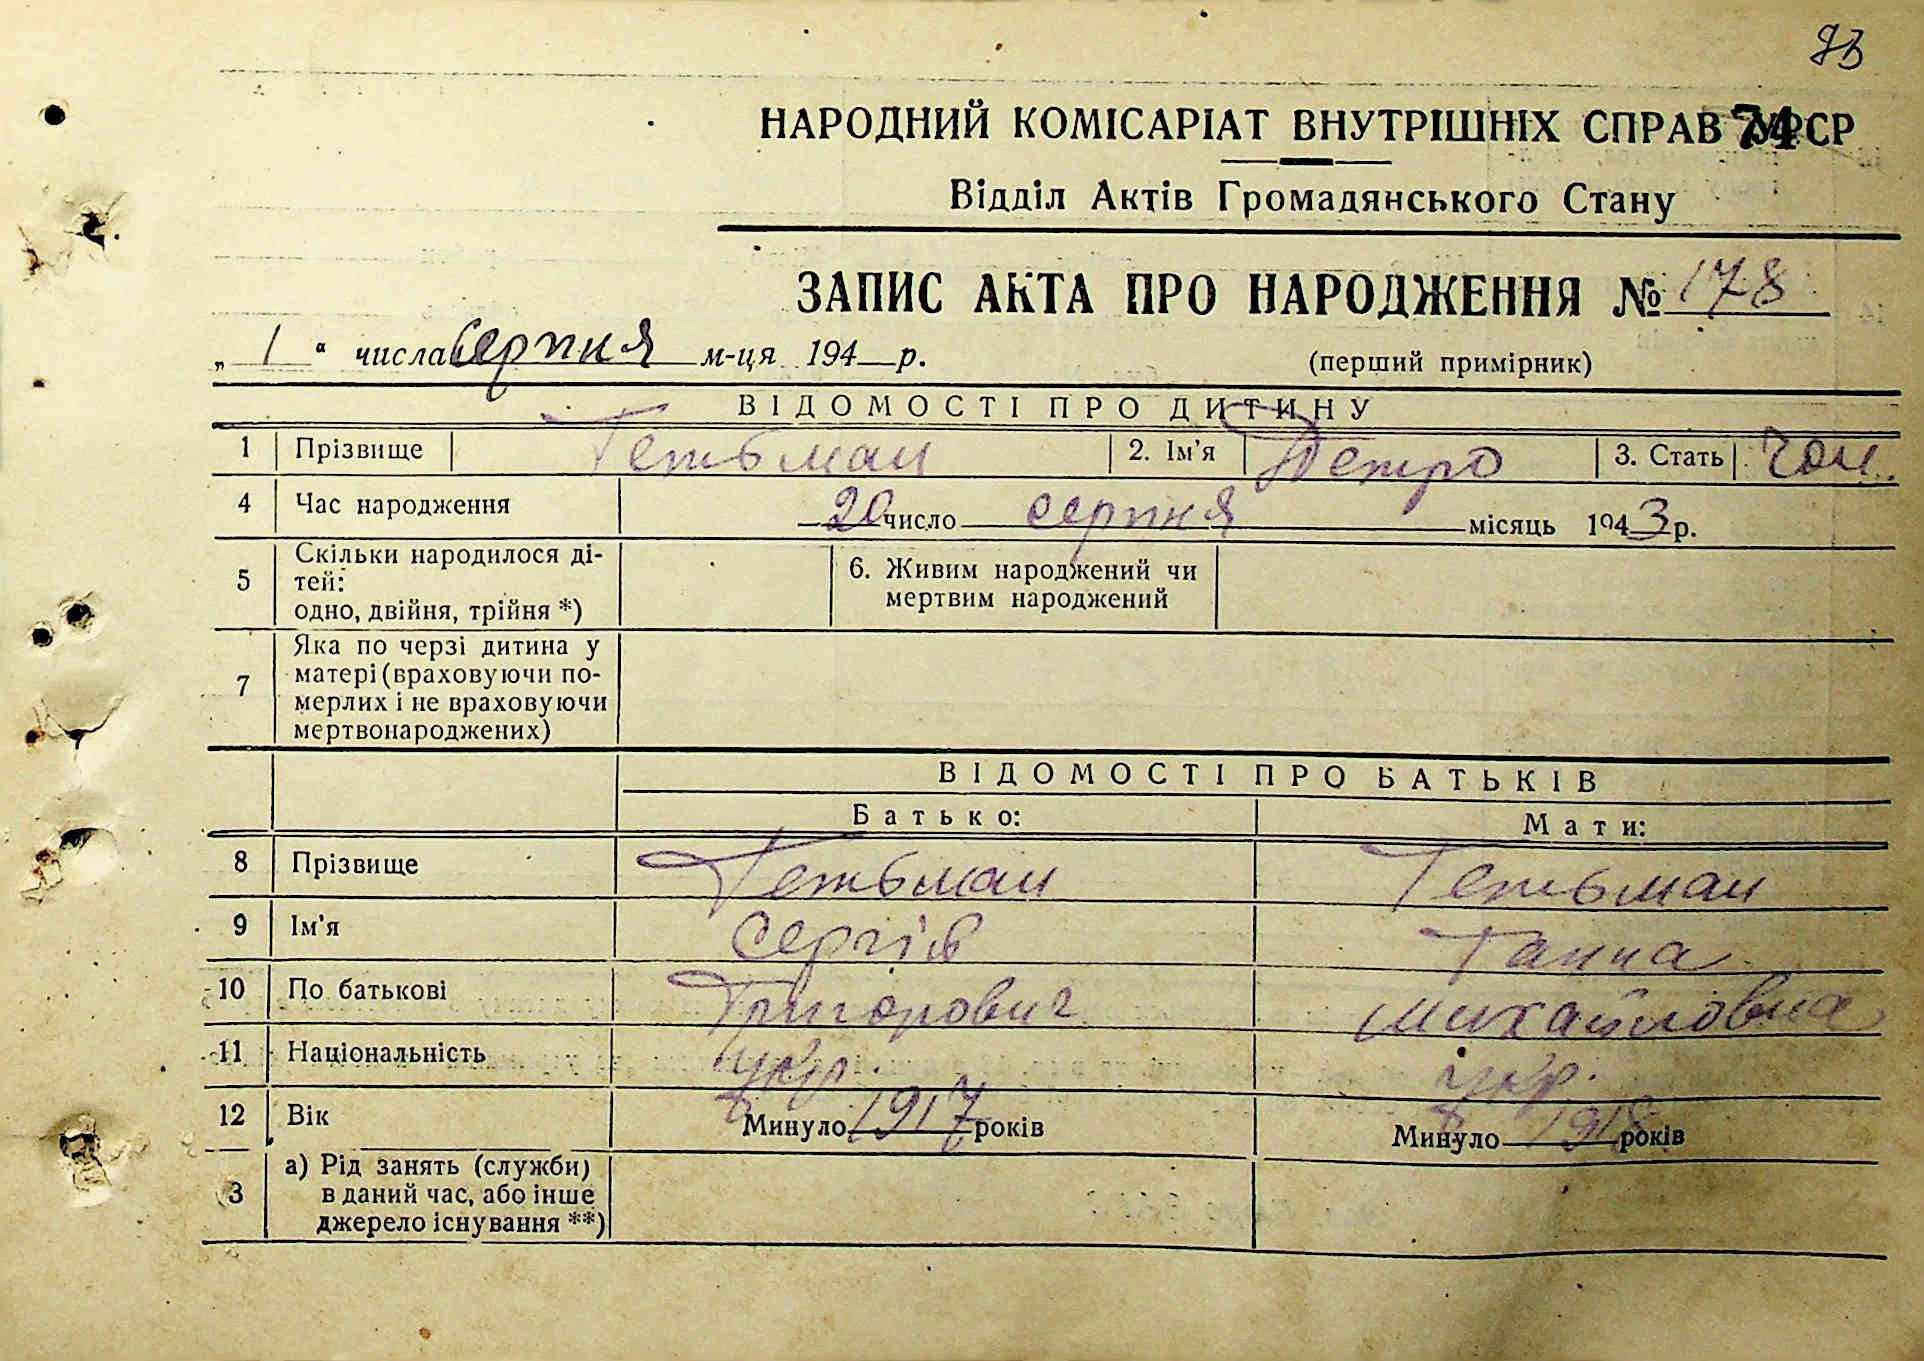 73
НАРОДНИЙ КОМІСАРІАТ ВНУТРІШНІХ СПРАВ УРСР
74
Відділ Актів Громадянського Стану
ЗАПИС АКТА ПРО НАРОДЖЕННЯ № 178
„ 1 “ числа Серпня м-ця 194 р. (перший примірник)
ВІДОМОСТІ ПРО ДИТИНУ
1 Прізвище Гетьман 2. Ім'я Петро 3. Стать Чол.
4 Час народження 20 число серпня місяць 1943 р.
5 Скільки народилося ді-
тей:
одно, двійня, трійня *)
6. Живим народжений чи
мертвим народжений
7 Яка по черзі дитина у
матері (враховуючи по-
мерлих і не враховуючи
мертвонароджених)
ВІДОМОСТІ ПРО БАТЬКІВ
Батько: Мати:
8 Прізвище Гетьман Гетьман
9 Ім'я Сергій Ганна
10 По батькові Григорович Михайловна
11 Національність укр. укр.
12 Вік Минуло 1917 років Минуло 1918 років
3 а) Рід занять (служби)
в даний час, або інше
джерело існування **)